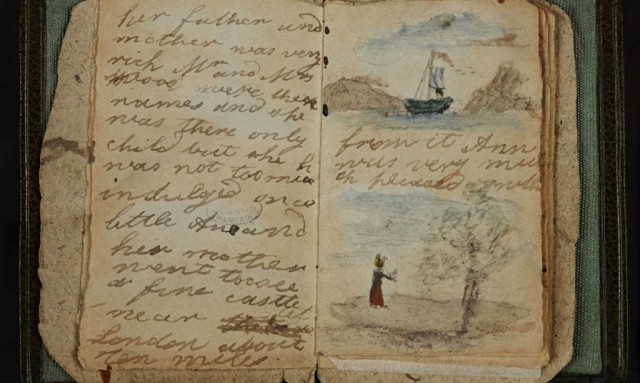 her father and
mother was very
rich Mr and Mrs
Wood were their
names and she
was there only
child but she h
was not too much
indulged once
little Ann and
her mother
went too see
a fine castle
near
London about
Ten miles
from it Ann
was very mu
ch pleased with